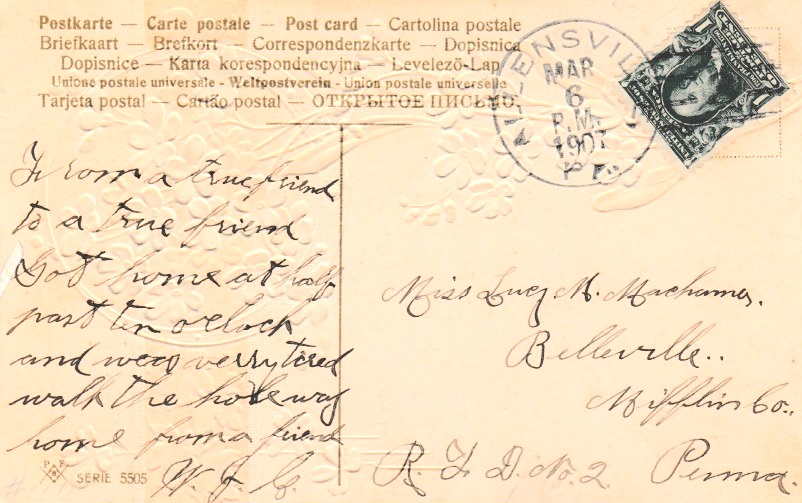 Postkarte — Carte postale — Post card — Cartolina postale
Briefkaart — Brefkort — Correspondenzkarte — Dopisnica
Dopisnice — Karta korespondencyjna — Levelező-Lap
Unione postale universale - Weltpostverein - Union postale universelle
Tarjeta postal — Cartão postal — ОТКРЫТОЕ ПИСЬМО
ALLENSVILLE
MAR
6
P.M.
1907
PA.
1
1
From a true friend
to a true friend
Got home at half
past ten oclock
and were verry tired
walk the hole way
home from a friend
W. J. C.
Miss Lucy M. Machamer.
Belleville..
Mifflin Co.,
R. F. D. No. 2 Penna.
P F
B
SERIE 5505